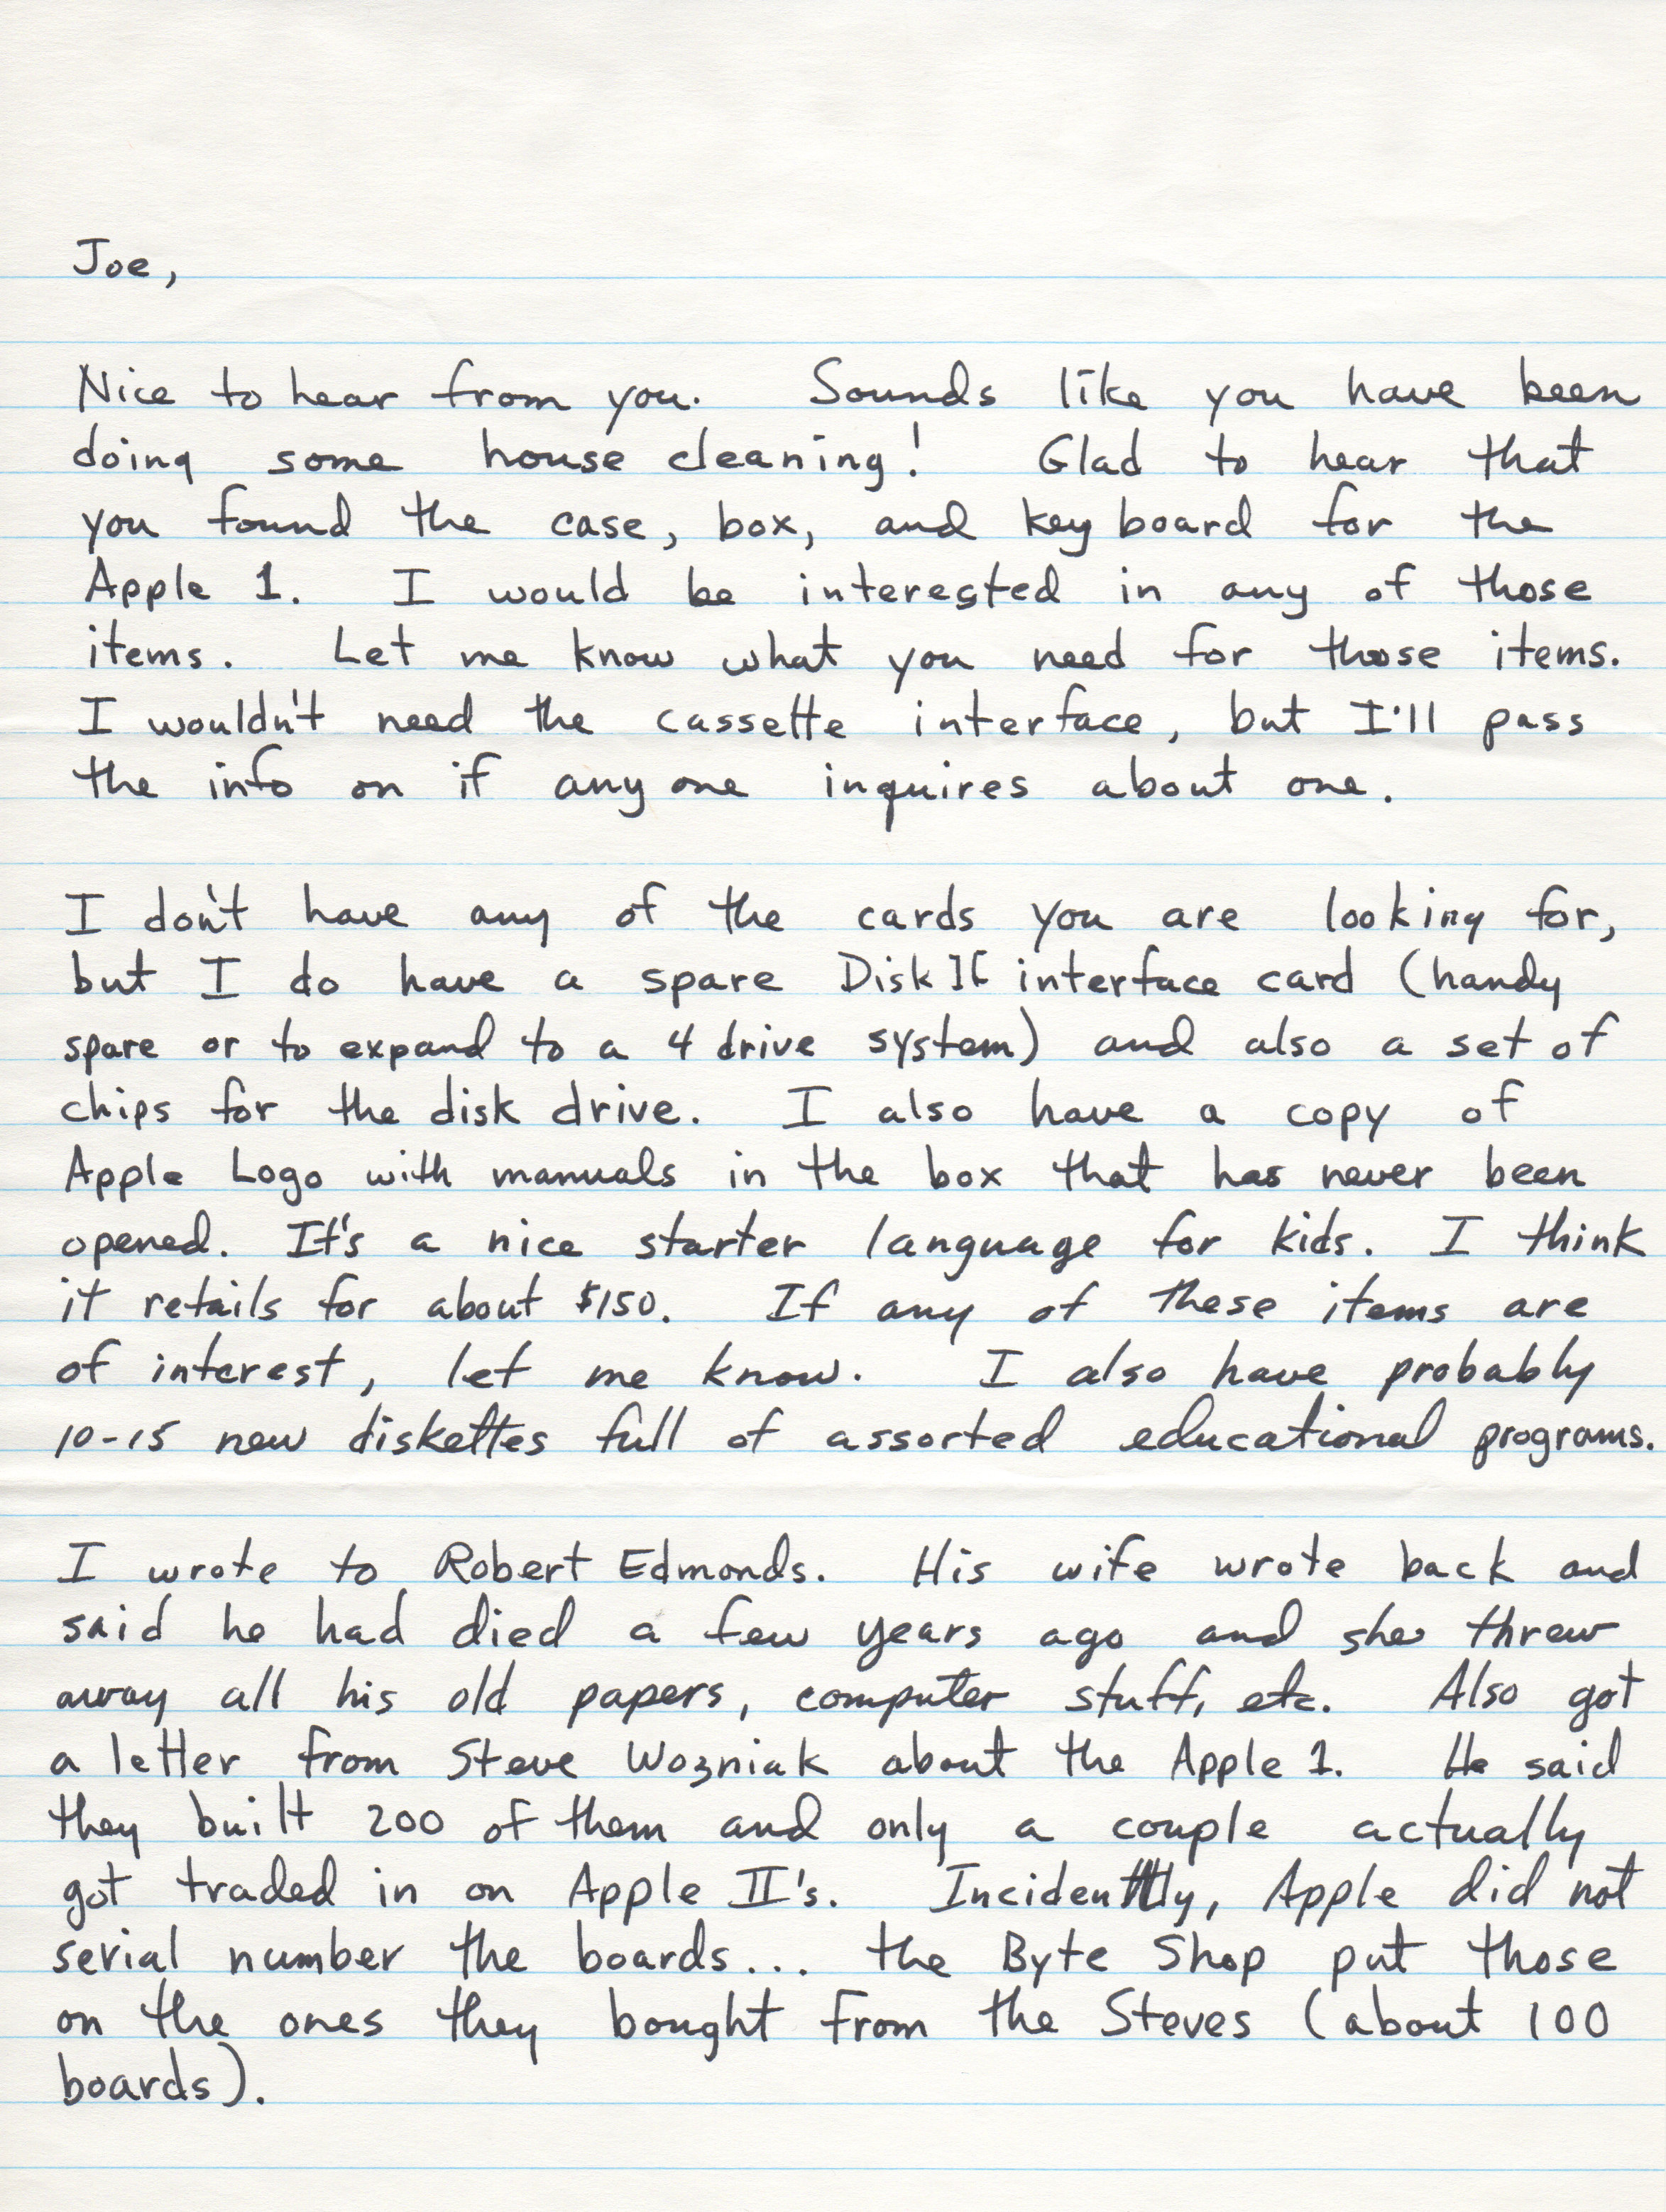 Joe,
Nice to hear from you. Sounds like you have been
doing some house cleaning! Glad to hear that
you found the case, box, and keyboard for the
Apple 1. I would be interested in any of those
items. Let me know what you need for those items.
I wouldn't need the cassette interface, but I'll pass
the info on if anyone inquires about one.
I don't have any of the cards you are looking for,
but I do have a spare Disk II interface card (handy
spare or to expand to a 4 drive system) and also a set of
chips for the disk drive. I also have a copy of
Apple Logo with manuals in the box that has never been
opened. It's a nice starter language for kids. I think
it retails for about $150. If any of these items are
of interest, let me know. I also have probably
10-15 new diskettes full of assorted educational programs.
I wrote to Robert Edmonds. His wife wrote back and
said he had died a few years ago and she threw
away all his old papers, computer stuff, etc. Also got
a letter from Steve Wozniak about the Apple 1. He said
they built 200 of them and only a couple actually
got traded in on Apple II's. Incidently, Apple did not
serial number the boards... the Byte Shop put those
on the ones they bought from the Steves (about 100
boards).